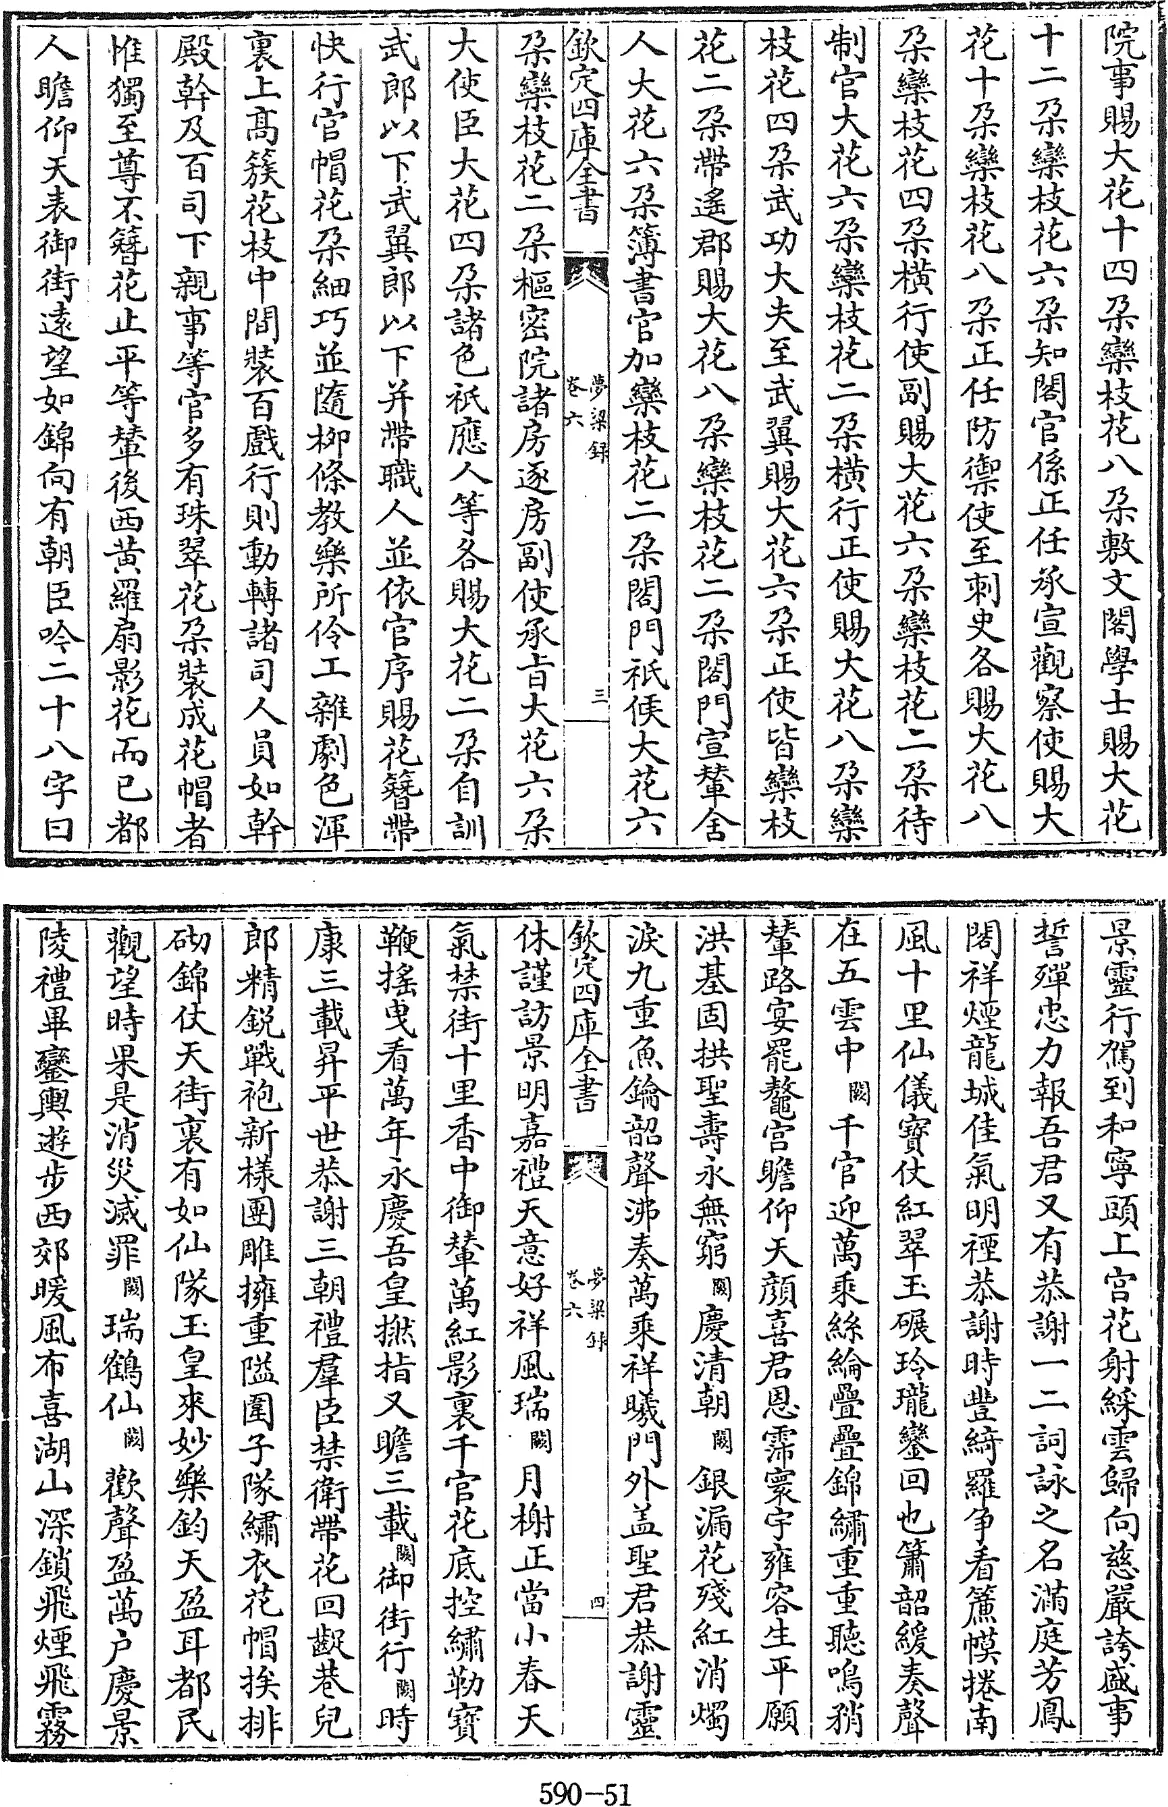 院事賜大花十四朶欒枝花八朶敷文閣學士賜大花
十二朶欒枝花六朶知閣官係正任承宣觀察使賜大
花十朶欒枝花八朶正任防禦使至刺史各賜大花八
朶欒枝花四朶橫行使副賜大花六朶欒枝花二朶待
制官大花六朶欒枝花二朶橫行正使賜大花八朶欒
枝花四朶武功大夫至武翼賜大花六朶正使皆欒枝
花二朶帶遙郡賜大花八朶欒枝花二朶閣門宣輦舍
人大花六朶簿書官加欒枝花二朶閣門祇候大花六
欽定四庫全書
夢粱録
卷六
三
朶欒枝花二朶樞密院諸房逐房副使承旨大花六朶
大使臣大花四朶諸色祇應人等各賜大花二朶自訓
武郎以下武翼郎以下并帶職人並依官序賜花簪帶
快行官帽花朶細巧並隨柳條教樂所伶工雜劇色渾
裹上高簇花枝中間裝百戲行則動轉諸司人員如幹
殿幹及百司下親事等官多有珠翠花朶裝成花帽者
惟獨至尊不簪花止平等輦後面黃羅扇影花而已都
人瞻仰天表御街遠望如錦向有朝臣吟二十八字曰
景靈行駕到和寧頭上宮花射綵雲歸向慈嚴誇盛事
誓殫忠力報吾君又有恭謝一二詞詠之名滿庭芳鳳
閣祥煙龍城佳氣明禋恭謝時豐綺羅争看簾幙捲南
風十里仙儀寶仗紅翠玉碾玲瓏鑾回也簫韶緩奏聲
在五雲中闕千官迎萬乘絲綸疊疊錦繡重重聽鳴稍
輦路宴罷鼇宮瞻仰天顔喜君恩霈寰宇雍容生平願
洪基固拱聖壽永無窮闕慶清朝闕銀漏花殘紅消燭
淚九重魚鑰韶聲沸奏萬乘祥曦門外盖聖君恭謝靈
欽定四庫全書
夢粱録
卷六
四
休謹訪景明嘉禮天意好祥風瑞闕月榭正當小春天
氣禁街十里香中御輦萬紅影裏千官花底控繡勒寶
鞭搖曳看萬年永慶吾皇撚指又瞻三載闕御街行闕時
康三載昇平世恭謝三朝禮羣臣禁衛帶花回齪巷兒
郎精鋭戰袍新樣團雕擁重隘圍子隊繡衣花帽挨排
砌錦仗天街裏有如仙隊玉皇來妙樂鈞天盈耳都民
觀望時果是消災滅罪闕瑞鶴仙闕歡聲盈萬户慶景
陵禮畢鑾輿遊步西郊暖風布喜湖山深鎖飛煙飛霧
590-51